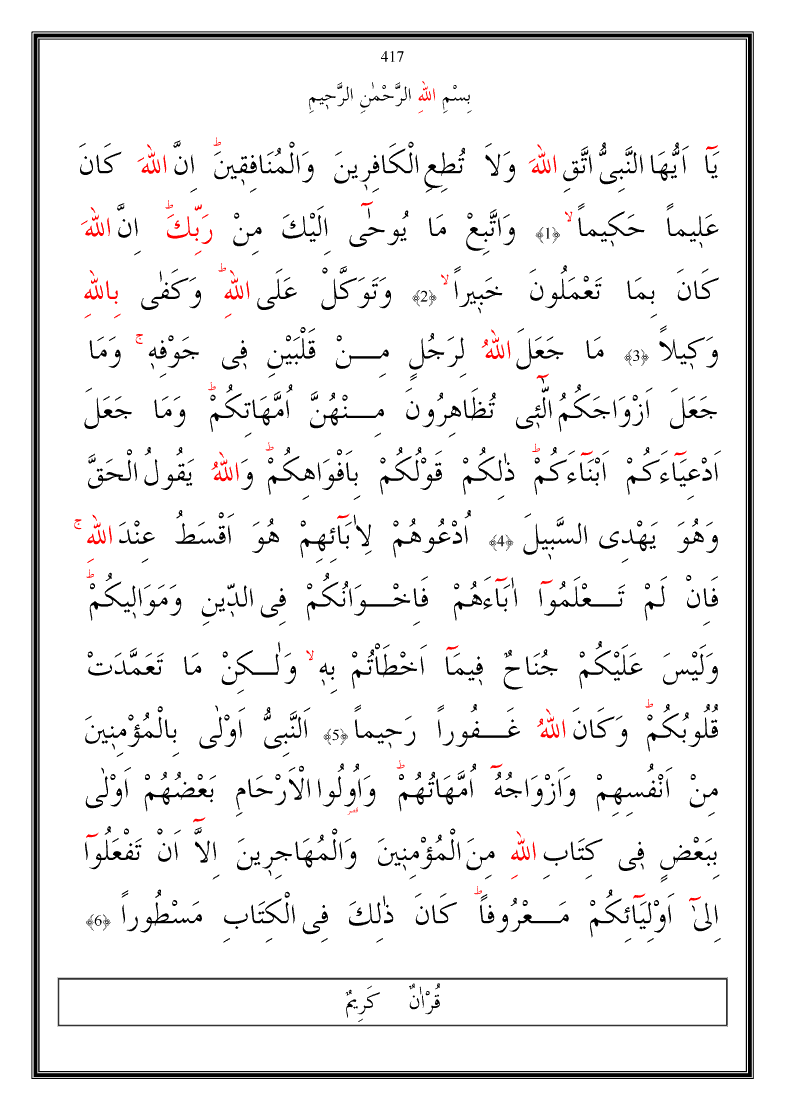 417
بِسْمِ اللهِ الرَّحْمٰنِ الرَّحٖيمِ
يَٓا اَيُّهَا النَّبِىُّ اتَّقِ اللهَ وَلَا تُطِعِ الْكَافِرٖينَ وَالْمُنَافِقٖينَۜ اِنَّ اللهَ كَانَ
عَلٖيماً حَكٖيماًۙ ﴿1﴾ وَاتَّبِعْ مَا يُوحٰٓى اِلَيْكَ مِنْ رَبِّكَۜ اِنَّ اللهَ
كَانَ بِمَا تَعْمَلُونَ خَبٖيراًۙ ﴿2﴾ وَتَوَكَّلْ عَلَى اللهِۜ وَكَفٰى بِاللهِ
وَكٖيلاً ﴿3﴾ مَا جَعَلَ اللهُ لِرَجُلٍ مِـنْ قَلْبَيْنِ فٖى جَوْفِهٖۚ وَمَا
جَعَلَ اَزْوَاجَكُمُ الّٰٓئٖى تُظَاهِرُونَ مِـنْهُنَّ اُمَّهَاتِكُمْۜ وَمَا جَعَلَ
اَدْعِيَٓاءَكُمْ اَبْنَٓاءَكُمْۜ ذٰلِكُمْ قَوْلُكُمْ بِاَفْوَاهِكُمْۜ وَاللهُ يَقُولُ الْحَقَّ
وَهُوَ يَهْدِى السَّبٖيلَ ﴿4﴾ اُدْعُوهُمْ لِاٰبَٓائِهِمْ هُوَ اَقْسَطُ عِنْدَ اللهِۚ
فَاِنْ لَمْ تَـعْلَمُٓوا اٰبَٓاءَهُمْ فَاِخْـوَانُكُمْ فِى الدّٖينِ وَمَوَالٖيكُمْۜ
وَلَيْسَ عَلَيْكُمْ جُنَاحٌ فٖيمَٓا اَخْطَاْتُمْ بِهٖۙ وَلٰـكِنْ مَا تَعَمَّدَتْ
قُلُوبُكُمْۜ وَكَانَ اللهُ غَـفُوراً رَحٖيماً ﴿5﴾ اَلنَّبِىُّ اَوْلٰى بِالْمُؤْمِنٖينَ
مِنْ اَنْفُسِهِمْ وَاَزْوَاجُهُٓ اُمَّهَاتُهُمْۜ وَاُولُوا الْاَرْحَامِ بَعْضُهُمْ اَوْلٰى
بِبَعْضٍ فٖى كِتَابِ اللهِ مِنَ الْمُؤْمِنٖينَ وَالْمُهَاجِرٖينَ اِلَّٓا اَنْ تَفْعَلُٓوا
اِلٰٓى اَوْلِيَٓائِكُمْ مَـعْرُوفاًۜ كَانَ ذٰلِكَ فِى الْكِتَابِ مَسْطُوراً ﴿6﴾
قُرْاٰنٌ كَرٖيمٌ